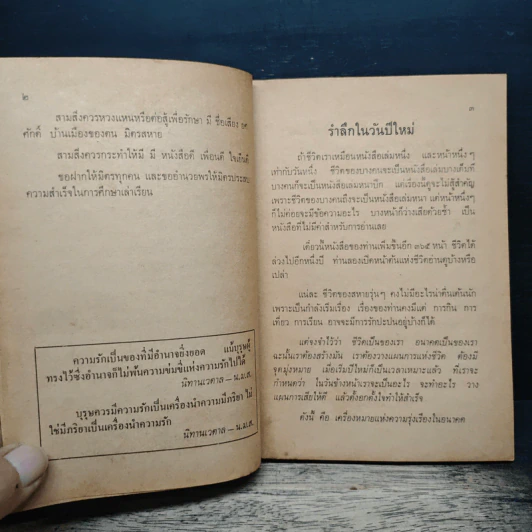 ๒
สามสิ่งควรหวงแหนหรือต่อสู้เพื่อรักษา มี ชื่อเสียง ยศ
ศักดิ์ บ้านเมืองของตน มิตรสหาย
สามสิ่งควรกระทำให้มี มี หนังสือดี เพื่อนดี ใจเย็นดี
ขอฝากให้มิตรทุกคน และขออำนวยพรให้มิตรประสบ
ความสำเร็จในการศึกษาเล่าเรียน
ความรักเป็นของที่มีอำนาจยิ่งยอด แม้บุรุษผู้
ทรงไว้ซึ่งอำนาจก็ไม่พ้นความข่มขี่แห่งความรักไปได้
นิทานเวตาล – น.ม.ส.
บุรุษควรมีความรักเป็นเครื่องนำความมีภริยา ไม่
ใช้มีภริยาเป็นเครื่องนำความรัก
นิทานเวตาล – น.ม.ส.
๓
รำลึกในวันปีใหม่
ถ้าชีวิตเราเหมือนหนังสือเล่มหนึ่ง และหน้าหนึ่งๆ
เท่ากับวันหนึ่ง ชีวิตของบางคนจะเป็นหนังสือเล่มบางเต็มที่
บางคนก็จะเป็นหนังสือเล่มหนาปึก แต่เรื่องนี้ดูจะไม่สู้สำคัญ
เพราะชีวิตของบางคนถึงจะเป็นหนังสือเล่มหนา แต่หน้าหนึ่งๆ
ก็ไม่ค่อยจะมีข้อความอะไร บางหน้าก็ว่างเสียด้วยซ้ำ เป็น
หนังสือที่ไม่มีค่าสำหรับการอ่านเลย
เดี๋ยวนี้หนังสือของท่านเพิ่มขึ้นอีก ๓๖๕ หน้า ชีวิตได้
ล่วงไปอีกหนึ่งปี ท่านลองเปิดหน้าต้นแห่งชีวิตอ่านดูบ้างหรือ
เปล่า
แน่ละ ชีวิตของสหายรุ่นๆ คงไม่มีอะไรน่าตื่นเต้นนัก
เพราะเป็นกำลังเริ่มเรื่อง เรื่องของท่านคงมีแต่ การกิน การ
เที่ยว การเรียน อาจจะมีการรักปะปนอยู่บ้างก็ได้
แต่จงจำไว้ว่า ชีวิตเป็นของเรา อนาคตเป็นของเรา
ฉะนั้นเราต้องสร้างมัน เราต้องวางแผนการแห่งชีวิต ต้องมี
จุดมุ่งหมาย เมื่อเริ่มปีใหม่ก็เป็นเวลาเหมาะแล้ว ที่เราจะ
กำหนดว่า ในวันข้างหน้าเราจะเป็นอะไร จะทำอะไร วาง
แผนการเสียให้ดี แล้วตั้งอกตั้งใจทำให้สำเร็จ
ดังนี้ คือ เครื่องหมายแห่งความรุ่งเรืองในอนาคต